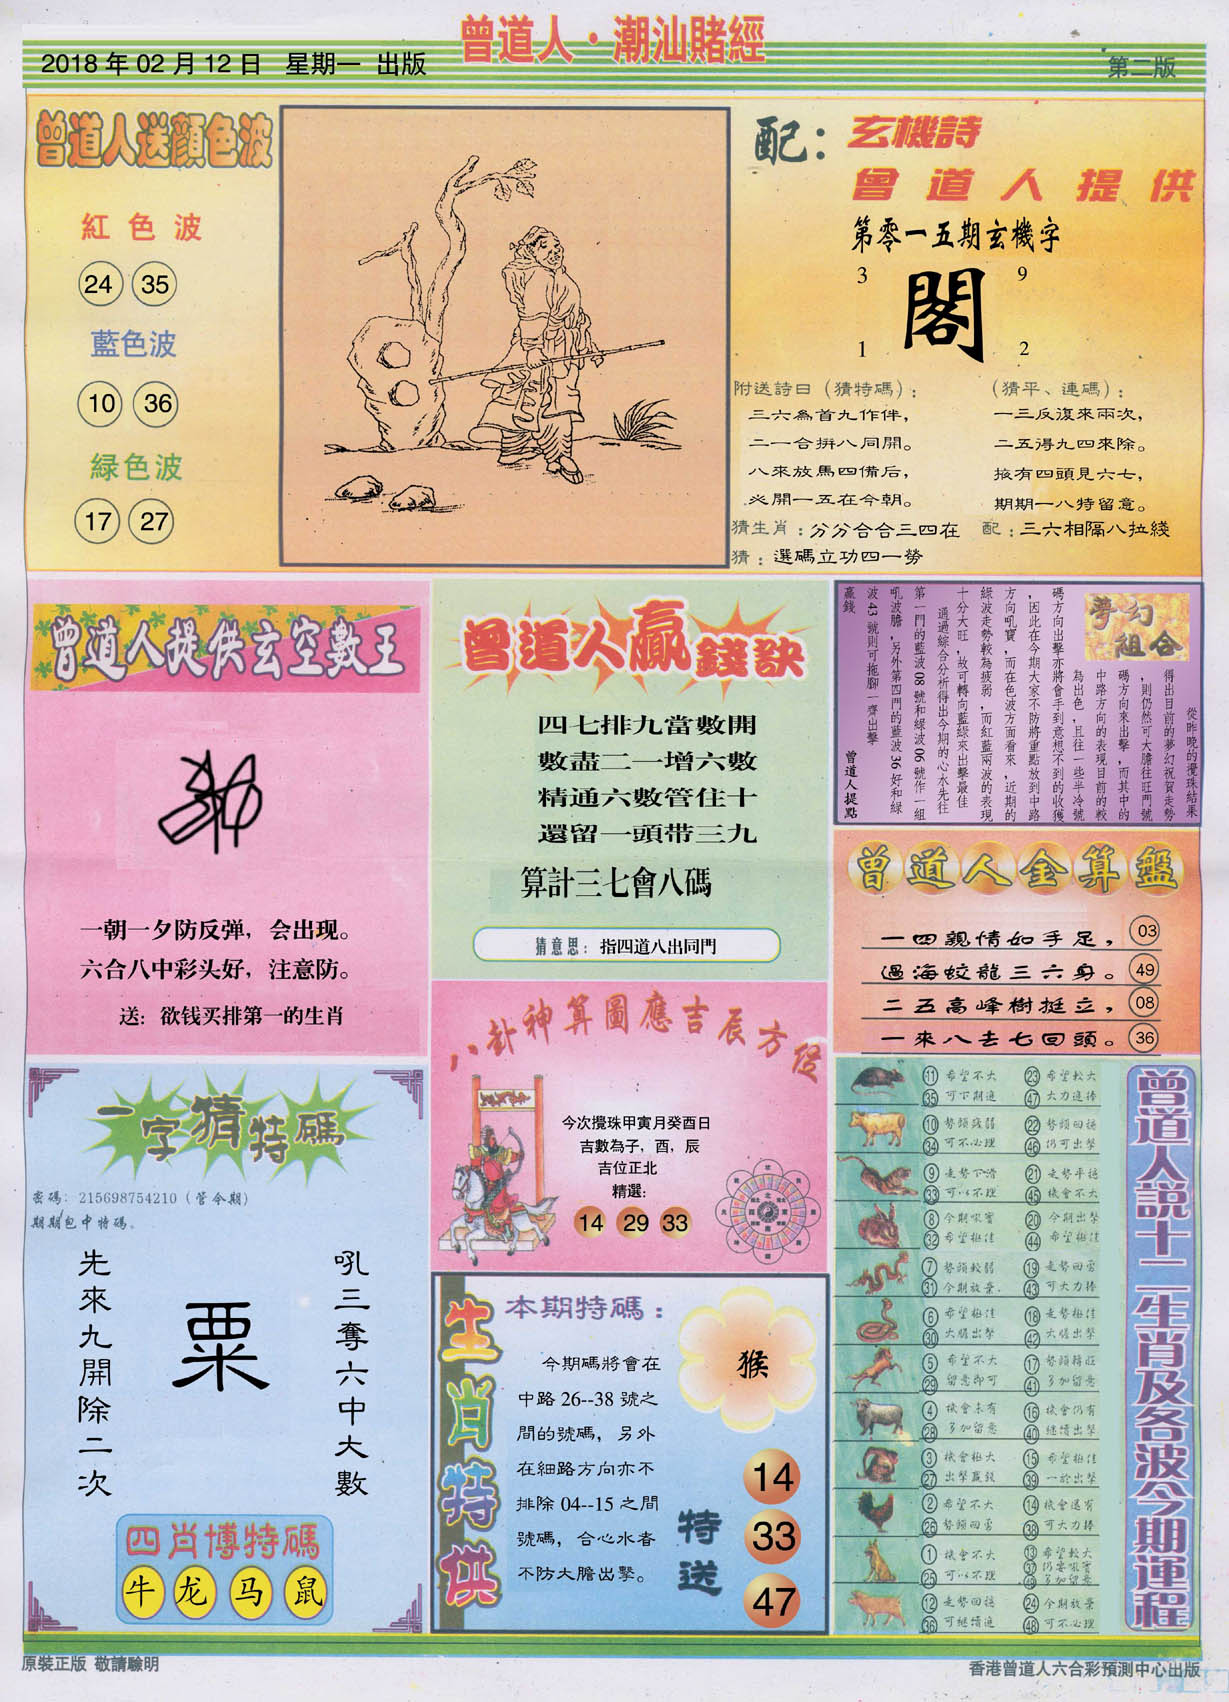 曾道人·潮汕賭經
2018年02月12日 星期一 出版
第二版
曾道人送顏色波
紅色波
24 35
藍色波
10 36
緑色波
17 27
配：玄機詩
曾道人提供
第零一五期玄機字
3 9
閣
1 2
附送詩曰（猜特碼）：
三六為首九作伴，
二一合拼八同開。
八來放馬四備后，
必開一五在今朝。
（猜平、連碼）：
一三反復來兩次，
二五得九四來除。
掖有四頭見六七，
期期一八特留意。
猜生肖：分分合合三四在
配：三六相隔八拉綫
猜：選碼立功四一勞
曾道人提供玄空數王
一朝一夕防反弹，会出现。
六合八中彩头好，注意防。
送：欲钱买排第一的生肖
曾道人贏錢訣
四七排九當數開
數盡二一增六數
精通六數管住十
還留一頭带三九
算計三七會八碼
猜意思：指四道八出同門
夢幻
組合
從昨晚的攪珠結果
得出目前的夢幻祝賀走勢
，則仍然可大膽往旺門號
碼方向來出擊，而其中的
中路方向的表現目前的較
為出色，且往一些半冷號
碼方向出擊亦將會手到意想不到的收獲
，因此在今期大家不防將重點放到中路
方向吼寶，而在色波方面看來，近期的
綠波走勢較為疲弱，而紅藍兩波的表現
十分大旺，故可轉向藍綠來出擊最佳
通過綜合分析得出今期的心水先往
第一門的藍波08號和綠波06號作一組
吼波膽，另外第四門的藍波36好和綠
波43號則可拖腳一齊出擊
贏錢
曾道人提點
曾道人金算盤
一四親情如手足， 03
過海蛟龍三六身。 49
二五高峰樹挺立， 08
一來八去七回頭。 36
八卦神算圖應吉辰方位
今次攪珠甲寅月癸酉日
吉數為子，酉，辰
吉位正北
精選：
14 29 33
一字猜特碼
密碼：215698754210（管令期）
期期包中特碼。
吼三奪六中大數
粟
先來九開除二次
四肖博特碼
牛 龙 马 鼠
生肖特供
本期特碼：
猴
今期碼將會在
中路26--38號之
間的號碼，另外
在細路方向亦不
排除04--15之間
號碼，合心水者
不防大膽出擊。
特送
14
33
47
曾道人説十二生肖及各波今期運程
11 希望不大 23 希望較大
35 可下期追 47 大力追捧
10 勢頭殘弱 22 勢頭回穩
34 可不必理 46 仍可出擊
9 走勢下滑 21 走勢平穩
33 可以不理 45 機會不大
8 今期吼寶 20 今期出擊
32 希望極佳 44 希望極佳
7 勢頭較弱 19 走勢回勇
31 今期放棄. 43 可大力捧
6 希望極佳 18 走勢極佳
30 大膽出擊 42 大膽出擊
5 希望不大 17 勢頭轉旺
29 留意即可 41 多加留意
4 機會未有 16 機會仍有
28 多加留意 40 繼續出擊
3 機會極大 15 希望極佳
27 出擊贏錢 39 一於出擊
2 希望不大 14 機會還有
26 勢頭回勇 38 可大力捧
1 機會不大 13 希望較大
25 可以不理 37 仍要吼寶
49 多加留意
12 走勢回穩 24 今期放棄
36 可繼續追 48 可不必理
原裝正版 敬請驗明
香港曾道人六合彩預測中心出版